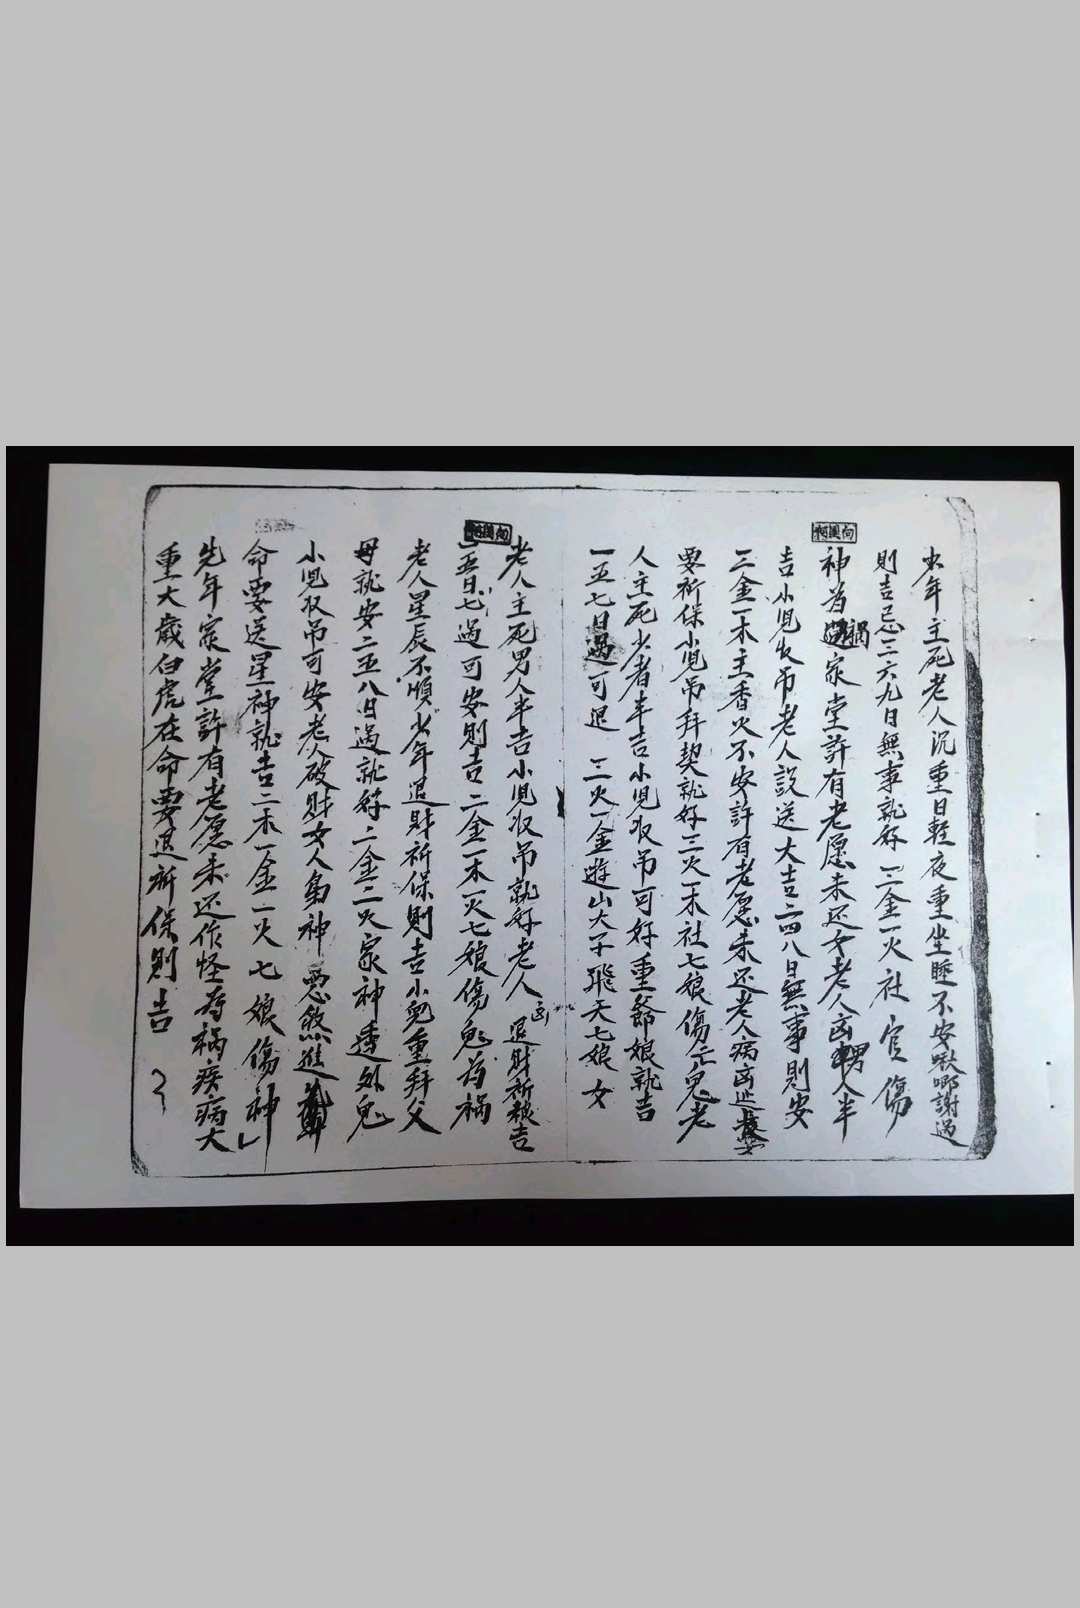 少年主死老人沉重日輕夜重坐睡不安歌唧謝過
則吉忌三六九日無事就好 三金一火社官傷
神為禍家堂許有老愿未还女老人凶男人半
吉小児收吊老人設送大吉二四八日無事則安
三金一木主香火不安許有老愿未还老人病凶
要祈保小児吊拜契就好 三火一木社七娘傷亡鬼老
人主死少者半吉小児收吊可好重爺娘就吉
一五七日過可退 三火一金遊山大子飛天七娘女
老人主死男人半吉小児收吊就好老人凶退財祈禳吉
五日七過可安則吉 二金一木一火七娘傷鬼為祸
老人星辰不順少年退財祈保則吉小兒重拜父
母就安二五八日過就好 二金二火家神透外鬼
小児收吊可安老人破財女人梟神惡煞進
命要送星神就吉 二木一金一火七娘傷神
先年家堂許有老愿未还作怪為祸疾病大
重大歲白虎在命要退祈保則吉